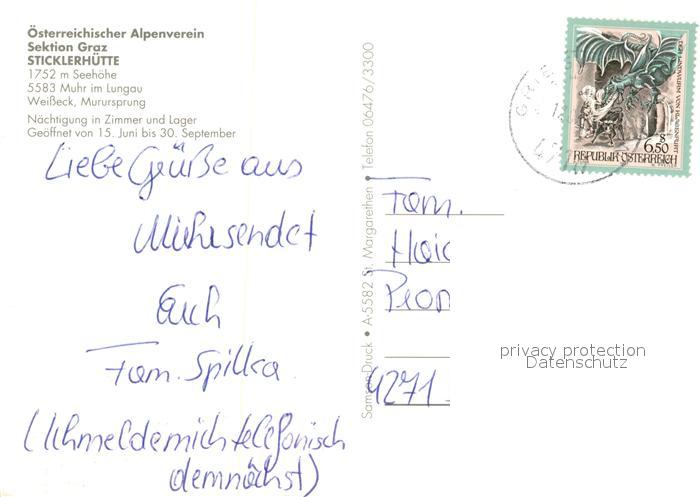 Österreichischer Alpenverein
Sektion Graz
STICKLERHÜTTE
1752 m Seehöhe
5583 Muhr im Lungau
Weißeck, Murursprung
Nächtigung in Zimmer und Lager
Geöffnet von 15. Juni bis 30. September
Liebe Grüße aus
Muhr sendet
Euch
Fam. Spilka
(Ich melde mich telefonisch
demnächst)
Samson-Druck • A-5582 St. Margarethen • Telefon 06476/3300
DER LINDWURM VON KLAGENFURT
S
6.50
REPUBLIK ÖSTERREICH
Fam.
Haid
4271
privacy protection
Datenschutz